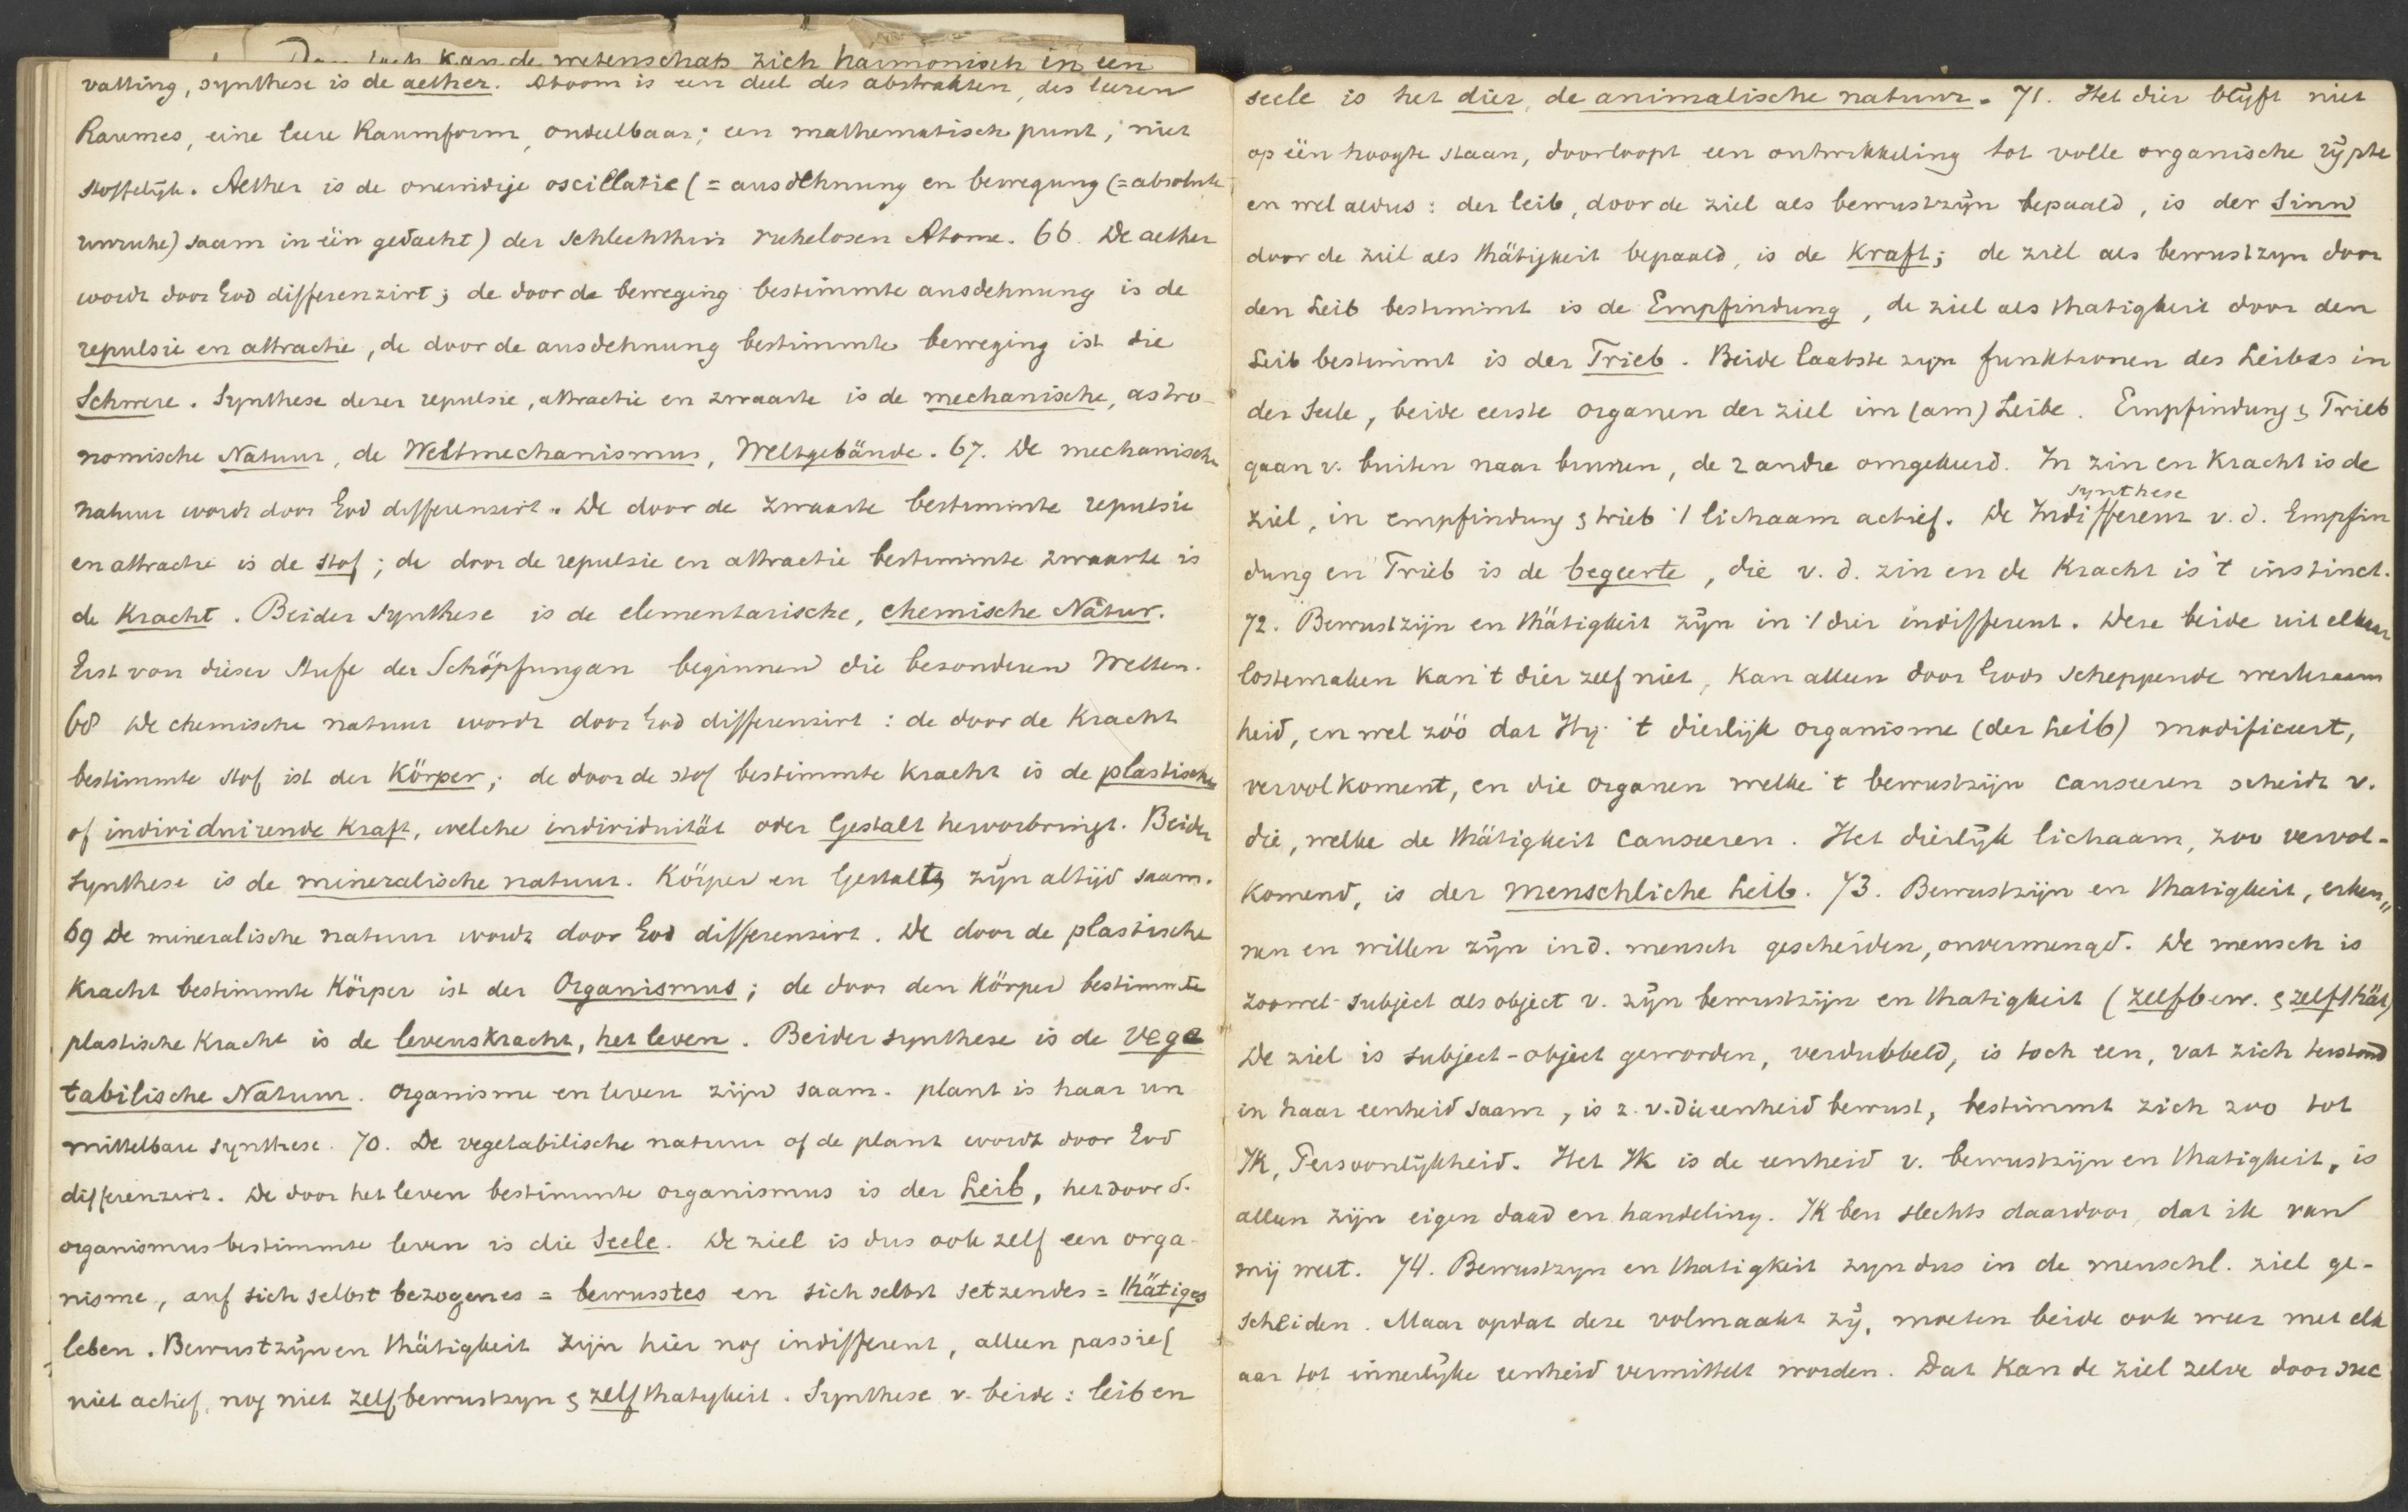 Dan toch kan de wetenschap zich harmonisch in een
vatting, synthese is de aether. Atoom is een deel des abstrakten, des leeren
Raumes, eine leere Raumform, ondeelbaar; een mathematisch punt, niet
stoffelijk. Aether is de oneindige oscillatie (= ausdehnung en bewegung (= absolute
unruhe) saam in één gedacht) der schlechthin ruhelosen Atome. 66. De aether
wordt door God differenzirt; de door de beweging bestimmte ausdehnung is de
repulsie en attractie, de door de ausdehnung bestimmte beweging ist die
Schwere. Synthese dezer repulsie, attractie en zwaarte is de mechanische, astro-
nomische Natuur, de Weltmechanismus, Weltgebäude. 67. De mechanische
natuur wordt door God differenzirt. De door de zwaarte bestimmte repulsie
en attractie is de stof; de door de repulsie en attractie bestimmte zwaarte is
de Kracht. Beider synthese is de elementarische, chemische Natur.
Erst von dieser Stufe der Schöpfung an beginnen die besonderen Welten.
68 De chemische natuur wordt door God differenzirt: de door de Kracht
bestimmte stof ist der Körper; de door de stof bestimmte kracht is de plastische
of individuirende Kraft, welche individuität oder Gestalt hervorbringt. Beider
synthese is de mineralische natuur. Körper en Gestalt zijn altijd saam.
69 De mineralische natuur wordt door God differenzirt. De door de plastische
Kracht bestimmte Körper ist der Organismus; de door den Körper bestimmte
plastische Kracht is de levenskracht, het leven. Beider synthese is de vege
tabilische Natuur. Organisme en leven zijn saam. plant is haar un
mittelbare synthese. 70. De vegetabilische natuur of de plant wordt door God
differenzirt. De door het leven bestimmte organismus is der Leib, het door d.
organismus bestimmte leven is die Seele. De ziel is dus ook zelf een orga-
nisme, auf sich selbst bezogenes = bewusstes en sich selbst setzendes = thätiges
leben. Bewustzijn en thätigkeit zijn hier nog indifferent, alleen passief
niet actief, nog niet zelfbewustzyn & zelfthatigkeit. Synthese v. beide: leib en
seele is het dier, de animalische natuur. 71. Het dier blijft niet
op één hoogte staan, doorloopt een ontwikkeling tot volle organische rijpte
en wel aldus: der leib, door de ziel als bewustzijn bepaald, is der Sinn
door de ziel als thätigkeit bepaald, is de Kraft; de ziel als bewustzyn door
den Leib bestimmt is de Empfindung, de ziel als thatigkeit door den
Leib bestimmt is der Trieb. Beide laatste zyn funktionen des Leibes in
der Seele, beide eerste organen der ziel im (am) Leibe. Empfindung & Trieb
gaan v. buiten naar binnen, de 2 andre omgekeerd. In zin en Kracht is de
ziel, in empfindung & trieb 't lichaam actief. De Indifferenz synthese v. d. Empfin
dung en Trieb is de begeerte, die v. d. zin en de Kracht is 't instinct.
72. Bewustzijn en thätigkeit zijn in 't dier indifferent. Deze beide uit elkaar
losmaken kan 't dier zelf niet, kan alleen door Gods scheppende werkzaam
heid, en wel zóó dat Hij 't dierlijk organisme (der Leib) modificeert,
vervolkoment, en die organen welke 't bewustzijn causeeren scheidt v.
die, welke de thätigkeit causeeren. Het dierlijk lichaam, zoo vervol-
komend, is der menschliche Leib. 73. Bewustzijn en thatigkeit, erken„
nen en willen zijn in d. mensch gescheiden, onvermengd. De mensch is
zoowel subject als object v. zijn bewustzijn en thatigkeit (zelfbew. & zelfthät)
De ziel is subject-object geworden, verdubbeld, is toch een, vat zich terstond
in haar eenheid saam, is z. v. die eenheid bewust, bestimmt zich zoo tot
Ik, Persoonlijkheid. Het Ik is de eenheid v. bewustzijn en thatigkeit, is
alleen zijn eigen daad en handeling. Ik ben slechts daardoor, dat ik van
mij weet. 74. Bewustzyn en thatigkeit zyn dus in de menschl. ziel ge-
scheiden. Maar opdat deze volmaakt zij, moeten beide ook weer met elk
aar tot innerlijke eenheid vermittelt worden. Dat kan de ziel zelve door suc